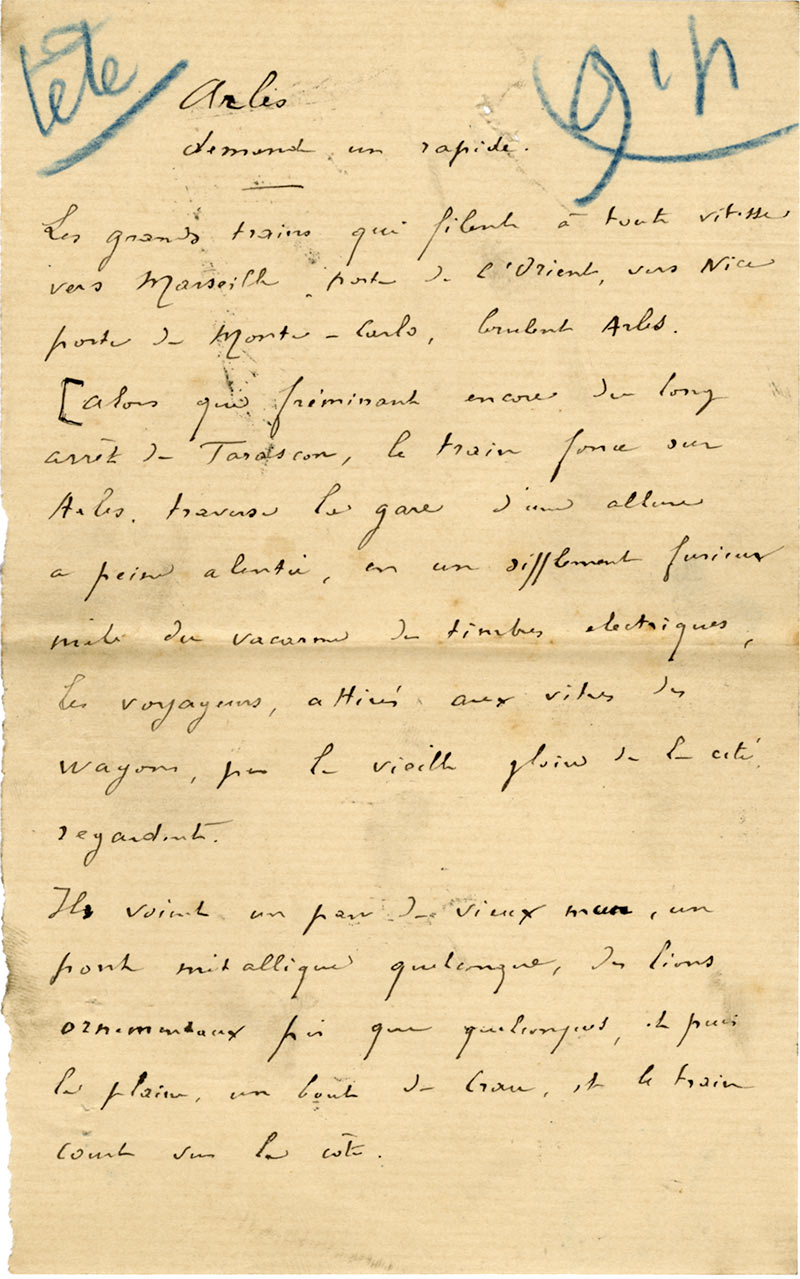 tête
Arles
demande un rapide.
Les grands trains qui filent à toute vitesse
vers Marseille, porte de l'Orient, vers Nice
porte de Monte-Carlo, brulent Arles.
[alors que frémissant encore du long
arrêt de Tarascon, le train fonce sur
Arles, traverse la gare d'une allure
a peine alentie, en un sifflement furieux
mêlé du vacarme de timbres electriques,
les voyageurs, attirés aux vitres des
wagons, par la vieille gloire de la cité,
regardent.
Ils voient un pan de vieux mur, un
pont métallique quelconque, des lions
ornementaux pis que quelconques, et puis
la plaine, un bout de Crau, et le train
court sur la côte.